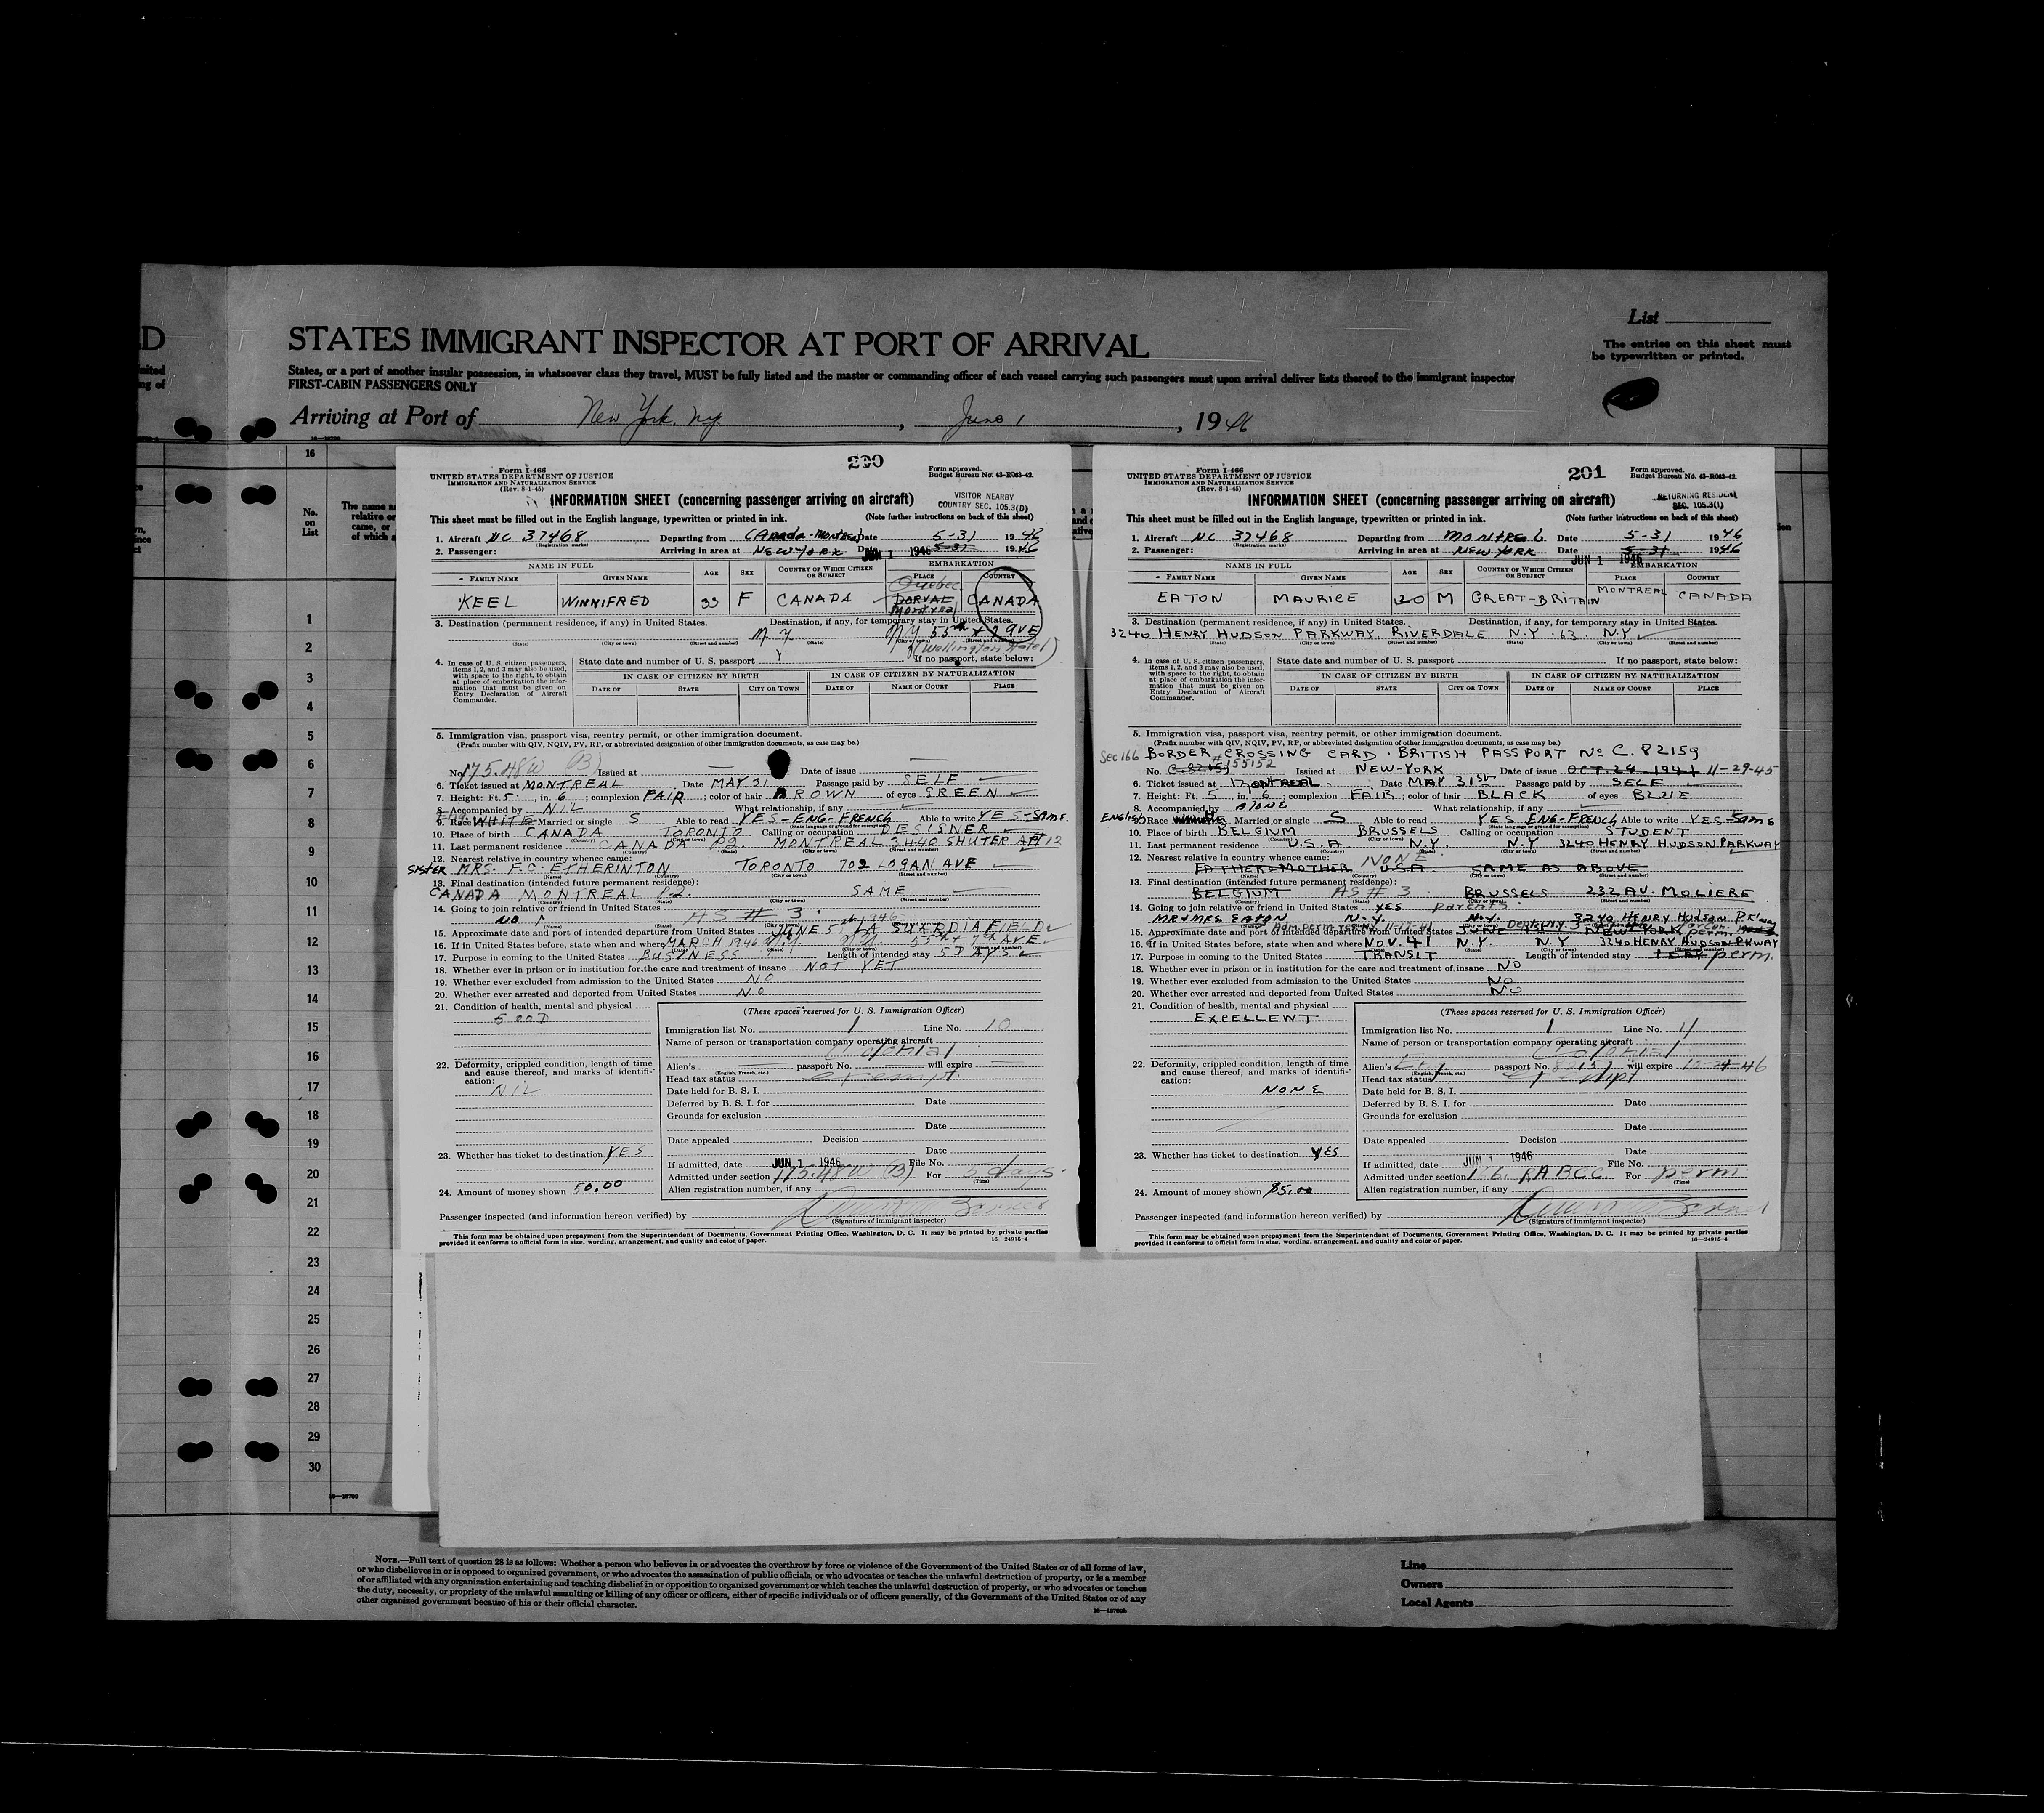 List
STATES IMMIGRANT INSPECTOR AT PORT OF ARRIVAL
The entries on this sheet must
be typewritten or printed.
States, or a port of another insular possession, in whatsoever class they travel, MUST be fully listed and the master or commanding officer of each vessel carrying such passengers must upon arrival deliver lists thereof to the immigrant inspector
FIRST-CABIN PASSENGERS ONLY
Arriving at Port of New York, ny. , June 1 , 1946
No.
on
List
200
Form I-466
UNITED STATES DEPARTMENT OF JUSTICE
IMMIGRATION AND NATURALIZATION SERVICE
(Rev. 8-1-45)
Form approved.
Budget Bureau No. 43-R063-42.
INFORMATION SHEET (concerning passenger arriving on aircraft)
VISITOR NEARBY
COUNTRY SEC. 105.3(D)
This sheet must be filled out in the English language, typewritten or printed in ink. (Note further instructions on back of this sheet)
1. Aircraft NC 37468 Departing from CANADA-MONTREAL Date 5-31 1946
(Registration marks)
2. Passenger: Arriving in area at NEW YORK Date JUN 1 1946 5-31 1946
NAME IN FULL AGE SEX COUNTRY OF WHICH CITIZEN OR SUBJECT EMBARKATION
FAMILY NAME GIVEN NAME PLACE COUNTRY
KEEL WINNIFRED 33 F CANADA Quebec DORVAL Montreal CANADA
3. Destination (permanent residence, if any) in United States. Destination, if any, for temporary stay in United States.
N Y N Y 55th & 7 AVE
(State) (City or town) (Street and number) (State) (City or town) (Street and number)
(Wellington Hotel)
4. In case of U. S. citizen passengers, items 1, 2, and 3 may also be used, with space to the right, to obtain at place of embarkation the information that must be given on Entry Declaration of Aircraft Commander.
State date and number of U. S. passport If no passport, state below:
IN CASE OF CITIZEN BY BIRTH IN CASE OF CITIZEN BY NATURALIZATION
DATE OF STATE CITY OR TOWN DATE OF NAME OF COURT PLACE
5. Immigration visa, passport visa, reentry permit, or other immigration document.
(Prefix number with QIV, NQIV, PV, RP, or abbreviated designation of other immigration documents, as case may be.)
No. 175.48W (B) Issued at Date of issue
6. Ticket issued at MONTREAL Date MAY 31 Passage paid by SELF
7. Height: Ft. 5 , in. 6 ; complexion FAIR ; color of hair BROWN of eyes GREEN
8. Accompanied by NIL What relationship, if any
9. Race WHITE Married or single S Able to read YES-ENG-FRENCH Able to write YES-SAME
10. Place of birth CANADA TORONTO Calling or occupation DESIGNER
11. Last permanent residence CANADA P.2. MONTREAL 3440 SHUTER APT 12
12. Nearest relative in country whence came:
SISTER MRS. F.C. ETHERINTON TORONTO 702 LOGAN AVE
13. Final destination (intended future permanent residence):
CANADA MONTREAL P.2 SAME
14. Going to join relative or friend in United States
NO AS # 3
15. Approximate date and port of intended departure from United States JUNE 5, LA GUARDIA FIELD
16. If in United States before, state when and where MARCH 1946 N.Y. N.Y. 55th & 7th AVE
17. Purpose in coming to the United States BUSINESS Length of intended stay 5 DAYS
18. Whether ever in prison or in institution for the care and treatment of insane NOT YET
19. Whether ever excluded from admission to the United States NO
20. Whether ever arrested and deported from United States NO
21. Condition of health, mental and physical
GOOD
22. Deformity, crippled condition, length of time and cause thereof, and marks of identification:
NIL
23. Whether has ticket to destination YES
24. Amount of money shown 50.00
(These spaces reserved for U. S. Immigration Officer)
Immigration list No. 1 Line No. 10
Name of person or transportation company operating aircraft
Colonial
Alien's passport No. will expire
(English, French, etc.)
Head tax status exempt
Date held for B. S. I.
Deferred by B. S. I. for Date
Grounds for exclusion
Date
Date appealed Decision
Date
If admitted, date JUN 1 1946 File No.
Admitted under section 175.48W (B) For 5 days
(Time)
Alien registration number, if any
Passenger inspected (and information hereon verified) by
(Signature of immigrant inspector)
This form may be obtained upon prepayment from the Superintendent of Documents, Government Printing Office, Washington, D. C. It may be printed by private parties
provided it conforms to official form in size, wording, arrangement, and quality and color of paper. 16—24915-4
201
Form I-466
UNITED STATES DEPARTMENT OF JUSTICE
IMMIGRATION AND NATURALIZATION SERVICE
(Rev. 8-1-45)
Form approved.
Budget Bureau No. 43-R063-42.
INFORMATION SHEET (concerning passenger arriving on aircraft)
RETURNING RESIDENT
SEC. 105.3(1)
This sheet must be filled out in the English language, typewritten or printed in ink. (Note further instructions on back of this sheet)
1. Aircraft NC 37468 Departing from MONTREAL Date 5-31 1946
(Registration marks)
2. Passenger: Arriving in area at NEW YORK Date 5-31 1946
JUN 1 1946
NAME IN FULL AGE SEX COUNTRY OF WHICH CITIZEN OR SUBJECT EMBARKATION
FAMILY NAME GIVEN NAME PLACE COUNTRY
EATON MAURICE 20 M GREAT-BRITAIN MONTREAL CANADA
3. Destination (permanent residence, if any) in United States. Destination, if any, for temporary stay in United States.
3240 HENRY HUDSON PARKWAY, RIVERDALE N.Y. 63. N.Y.
(State) (City or town) (Street and number) (State) (City or town) (Street and number)
4. In case of U. S. citizen passengers, items 1, 2, and 3 may also be used, with space to the right, to obtain at place of embarkation the information that must be given on Entry Declaration of Aircraft Commander.
State date and number of U. S. passport If no passport, state below:
IN CASE OF CITIZEN BY BIRTH IN CASE OF CITIZEN BY NATURALIZATION
DATE OF STATE CITY OR TOWN DATE OF NAME OF COURT PLACE
5. Immigration visa, passport visa, reentry permit, or other immigration document.
(Prefix number with QIV, NQIV, PV, RP, or abbreviated designation of other immigration documents, as case may be.)
Sec 166 BORDER CROSSING CARD. BRITISH PASSPORT No C. 82159
No. C-82159 #155152 Issued at NEW-YORK Date of issue OCT. 24 1941 11-29-45
6. Ticket issued at MONTREAL Date MAY 31st Passage paid by SELF
7. Height: Ft. 5 , in. 6 ; complexion FAIR ; color of hair BLACK of eyes BLUE
8. Accompanied by alone What relationship, if any
English 9. Race Married or single S Able to read YES ENG-FRENCH Able to write YES-Same
10. Place of birth BELGIUM BRUSSELS Calling or occupation STUDENT
11. Last permanent residence U.S.A. N.Y. N.Y 3240 HENRY HUDSON PARKWAY
12. Nearest relative in country whence came: NONE
FATHER MOTHER USA SAME AS ABOVE
13. Final destination (intended future permanent residence):
BELGIUM AS # 3 BRUSSELS 232 AV. MOLIERE
14. Going to join relative or friend in United States YES parents
MR & MRS EATON N.Y. N.Y. 3240 HENRY HUDSON PKway
15. Approximate date and port of intended departure from United States JUNE NEW YORK perm.
16. If in United States before, state when and where NOV. 41 N.Y. N.Y 3240 HENRY HUDSON PKWAY
17. Purpose in coming to the United States TRANSIT Length of intended stay perm.
18. Whether ever in prison or in institution for the care and treatment of insane NO
19. Whether ever excluded from admission to the United States NO
20. Whether ever arrested and deported from United States NO
21. Condition of health, mental and physical
EXCELLENT
22. Deformity, crippled condition, length of time and cause thereof, and marks of identification:
NONE
23. Whether has ticket to destination YES
24. Amount of money shown $5.00
(These spaces reserved for U. S. Immigration Officer)
Immigration list No. 1 Line No. 11
Name of person or transportation company operating aircraft
Colonial
Alien's Eng passport No. 82159 will expire 10-24-46
(English, French, etc.)
Head tax status exempt
Date held for B. S. I.
Deferred by B. S. I. for Date
Grounds for exclusion
Date
Date appealed Decision
Date
If admitted, date JUN 1 1946 File No.
Admitted under section 166 RABCC For perm
(Time)
Alien registration number, if any
Passenger inspected (and information hereon verified) by
(Signature of immigrant inspector)
This form may be obtained upon prepayment from the Superintendent of Documents, Government Printing Office, Washington, D. C. It may be printed by private parties
provided it conforms to official form in size, wording, arrangement, and quality and color of paper. 16—24915-4
16
1
2
3
4
5
6
7
8
9
10
11
12
13
14
15
16
17
18
19
20
21
22
23
24
25
26
27
28
29
30
16—18709
NOTE.—Full text of question 28 is as follows: Whether a person who believes in or advocates the overthrow by force or violence of the Government of the United States or of all forms of law,
or who disbelieves in or is opposed to organized government, or who advocates the assassination of public officials, or who advocates or teaches the unlawful destruction of property, or is a member
of or affiliated with any organization entertaining and teaching disbelief in or opposition to organized government or which teaches the unlawful destruction of property, or who advocates or teaches
the duty, necessity, or propriety of the unlawful assaulting or killing of any officer or officers, either of specific individuals or of officers generally, of the Government of the United States or of any
other organized government because of his or their official character.
16—18709b
Line
Owners
Local Agents